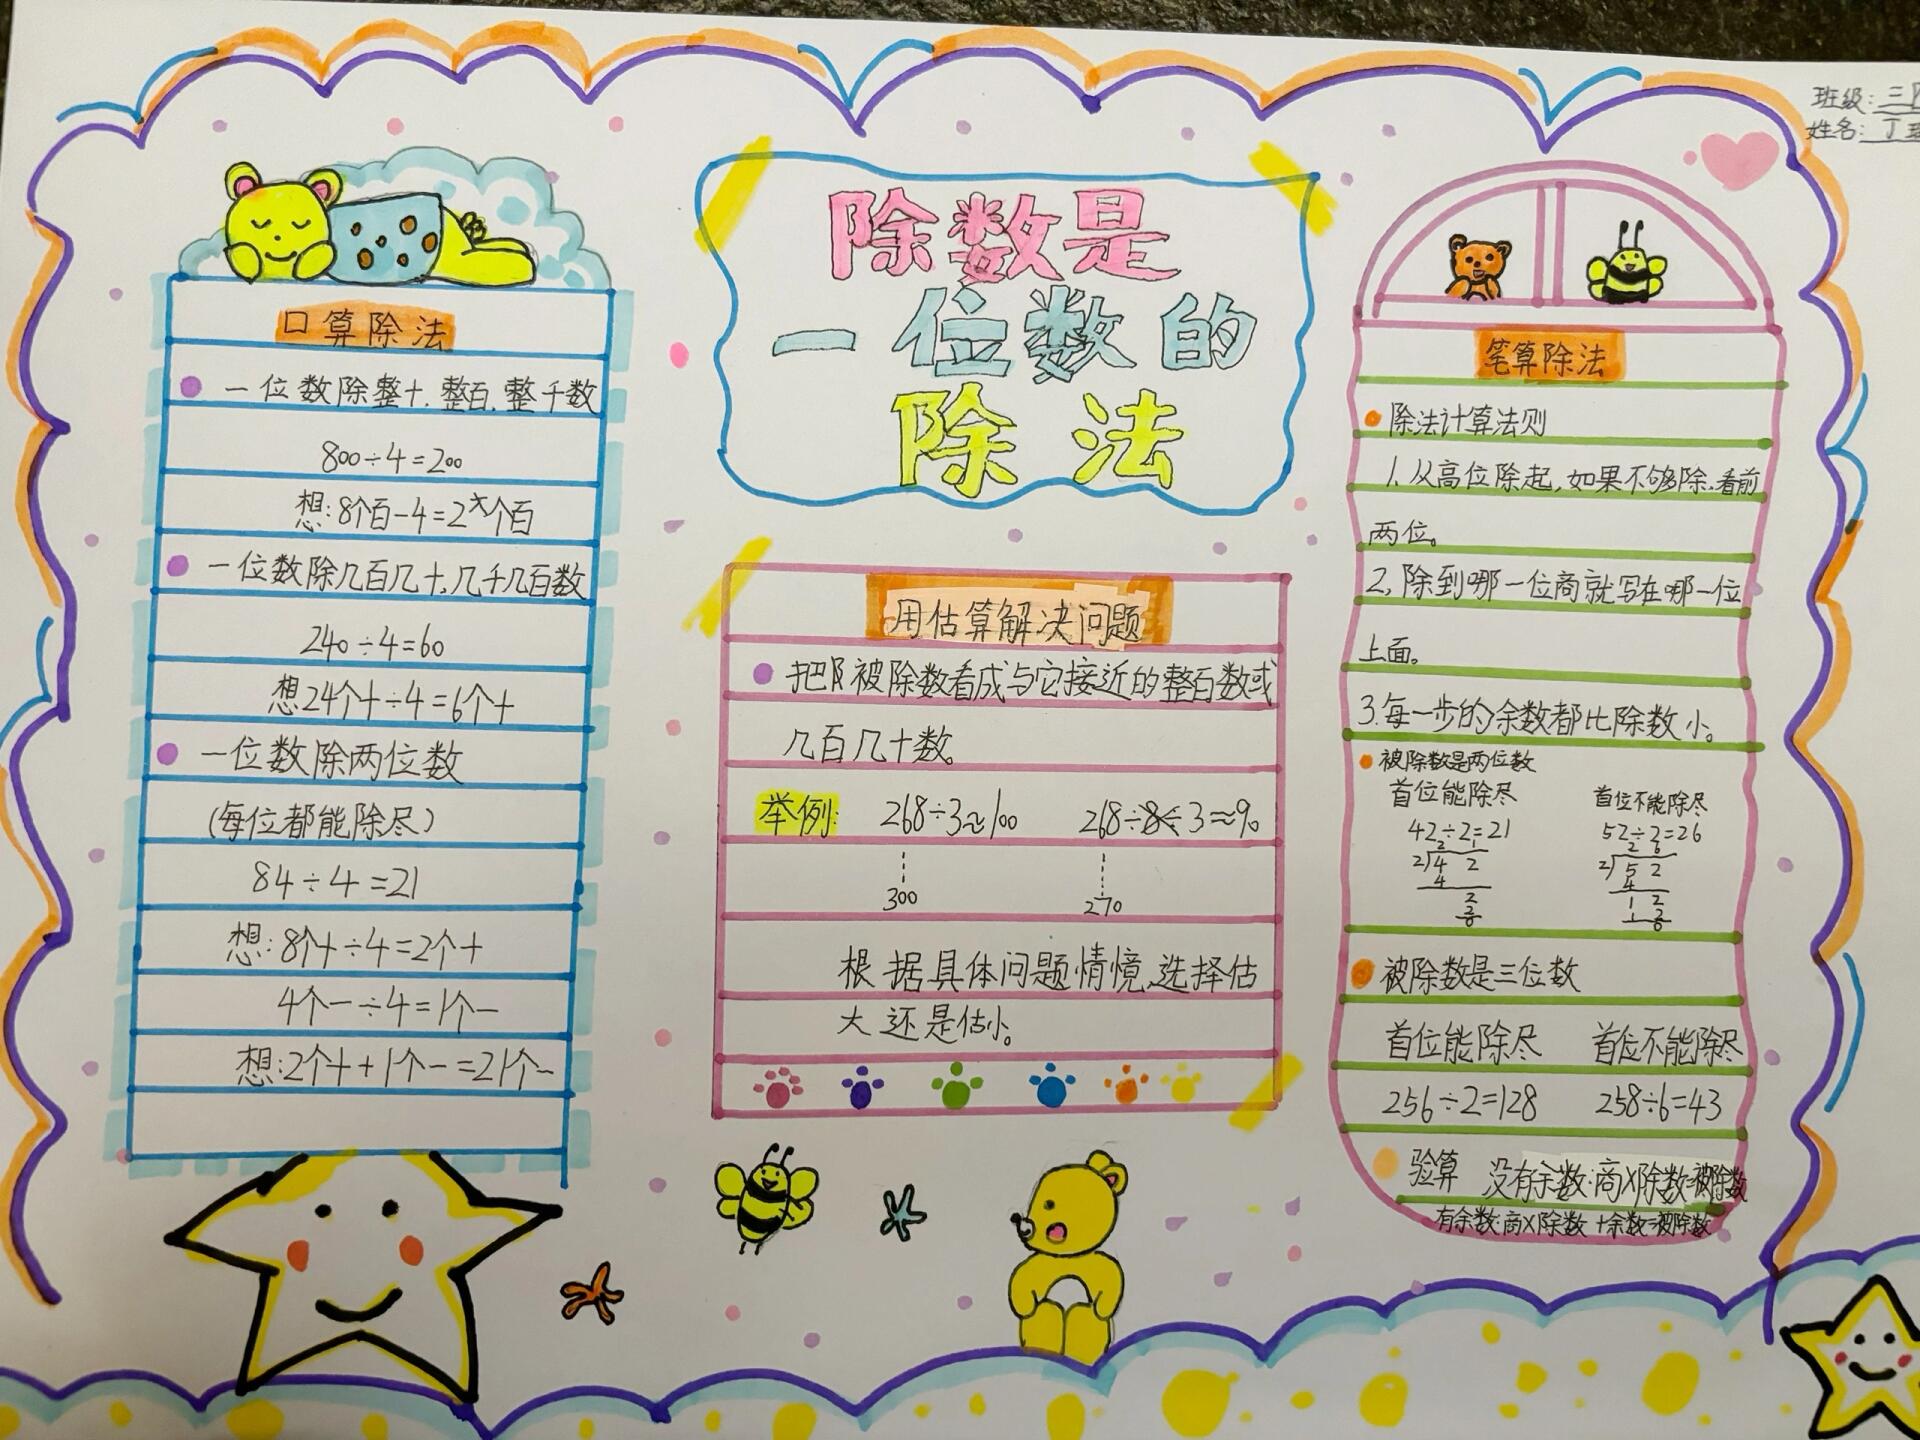 班级:三
姓名:丁
除数是
一位数的
除法
口算除法
一位数除整十.整百.整千数
800÷4=200
想:8个百-4=2个百
一位数除几百几十,几千几百数
240÷4=60
想24个十÷4=6个十
一位数除两位数
(每位都能除尽)
84÷4=21
想:8个十÷4=2个十
4个一÷4=1个一
想:2个十+1个一=21个一
用估算解决问题
把被除数看成与它接近的整百数或
几百几十数。
举例: 268÷3≈100 268÷3≈90
300 270
根据具体问题情境,选择估
大还是估小。
笔算除法
除法计算法则
1.从高位除起,如果不够除.看前
两位。
2,除到哪一位商就写在哪一位
上面。
3.每一步的余数都比除数小。
被除数是两位数
首位能除尽 首位不能除尽
42÷2=21 52÷2=26
2 1 2 6
2)4 2 2)5 2
4 4
2 1 2
2 1 2
0 0
被除数是三位数
首位能除尽 首位不能除尽
256÷2=128 258÷6=43
验算 没有余数:商×除数=被除数
有余数:商×除数+余数=被除数